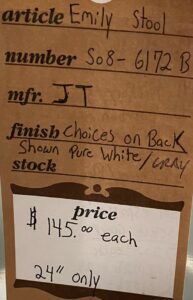 article Emily Stool
number S08-6172 B
mfr. JT
finish Choices on Back
Shown Pure White/GRAY
stock
price
$ 145.00 each
24" only